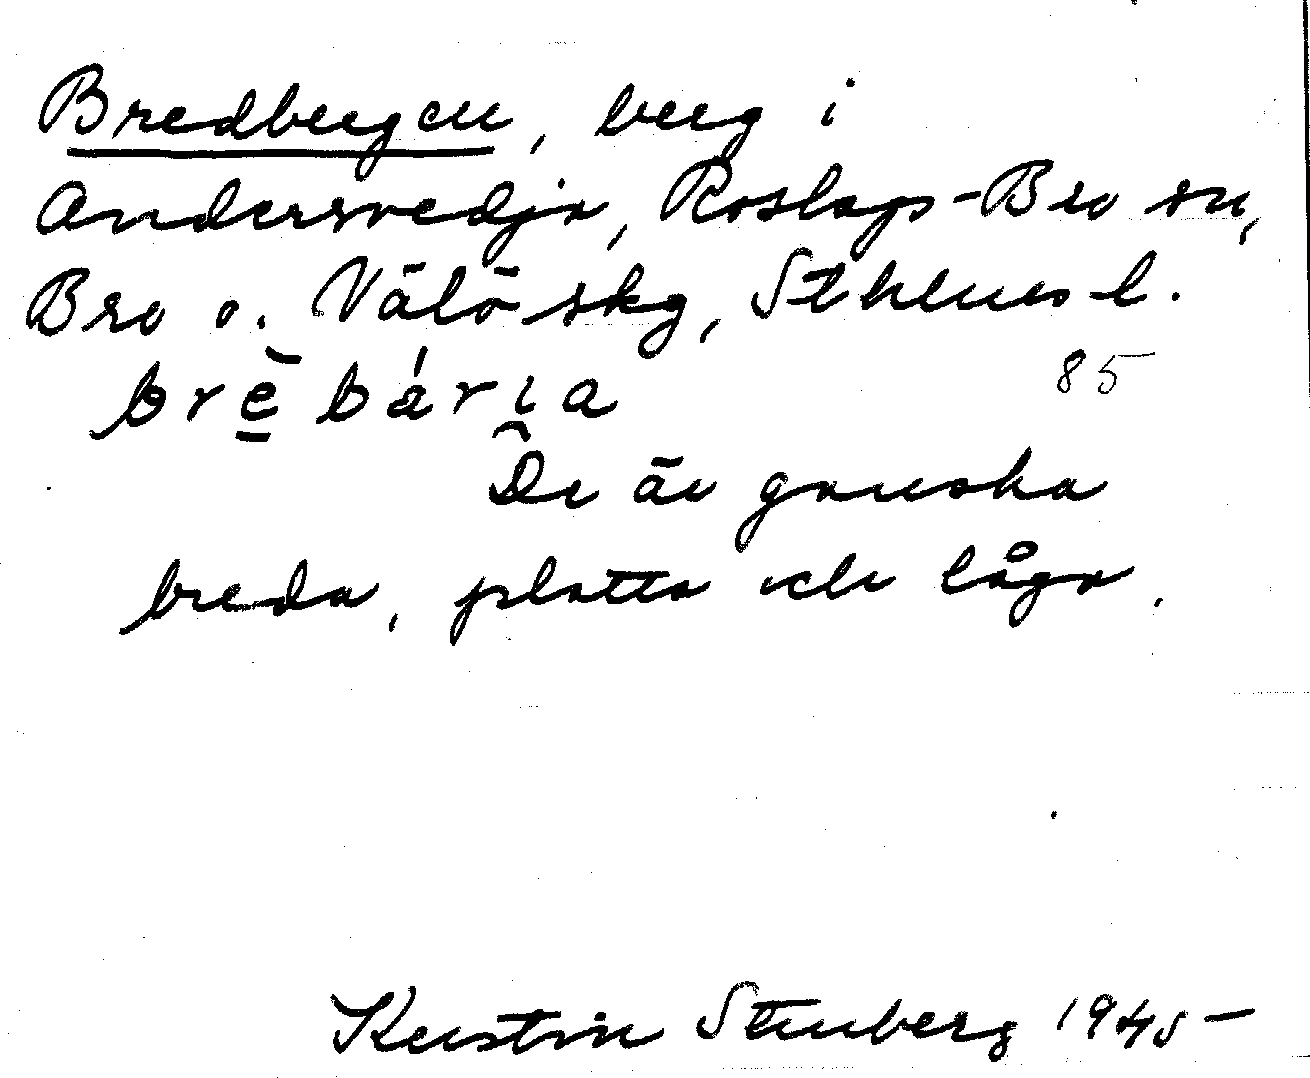 Bredbergen, berg i
Andersvedja, Roslags-Bro sn,
Bro o. Vätö skg, Sthlms l.
brè bár\u026Aa 85
De är ganska
breda, platta och låga.
Kerstin Stenberg 1945-